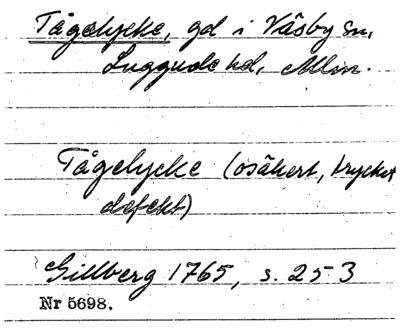 Tågelycke, gd i Väsby sn,
Luggude hd, Mlm.
Tågelycke (osäkert, trycket
defekt)
Gillberg 1765, s. 253
Nr 5698.